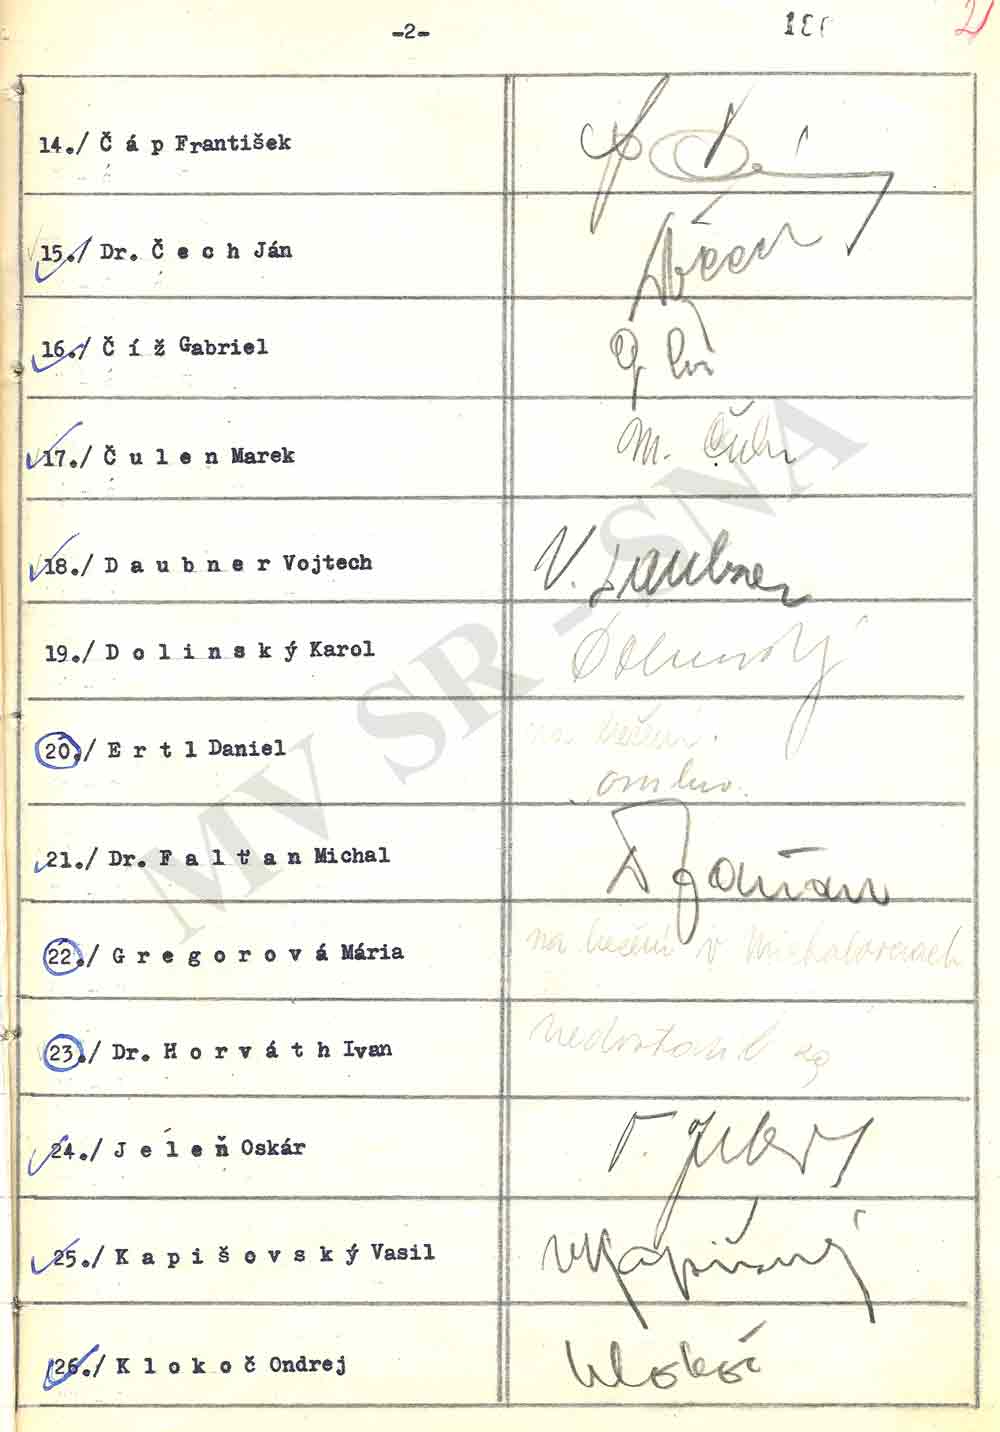 -2-
2
14./ Č á p František
15./ Dr. Č e c h Ján
16./ Č í ž Gabriel
17./ Č u l e n Marek
M. Čulen
18./ D a u b n e r Vojtech
V. Daubner
19./ D o l i n s k ý Karol
Dolinský
20./ E r t l Daniel
na liečení.
21./ Dr. F a l ť a n Michal
22./ G r e g o r o v á Mária
na liečení v Michalovciach
23./ Dr. H o r v á t h Ivan
nedostavil sa
24./ J e l e ň Oskár
25./ K a p i š o v s k ý Vasil
26./ K l o k o č Ondrej
Klokoč
MV SR - SNA